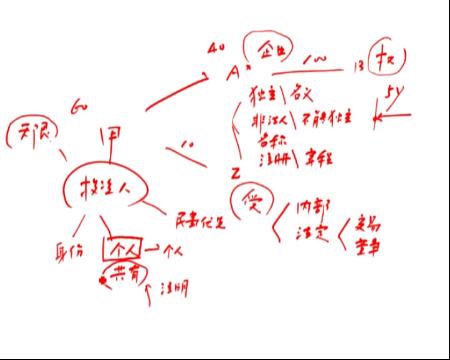 40 企业
A* 100 B 权
独立\名义 5y
60 非法人\不能独立
无限 甲 名称
10 注册\章程
Z
投资人 受 内部
法定 交易
民事优先
身份 个人 → 个人
共有 注明